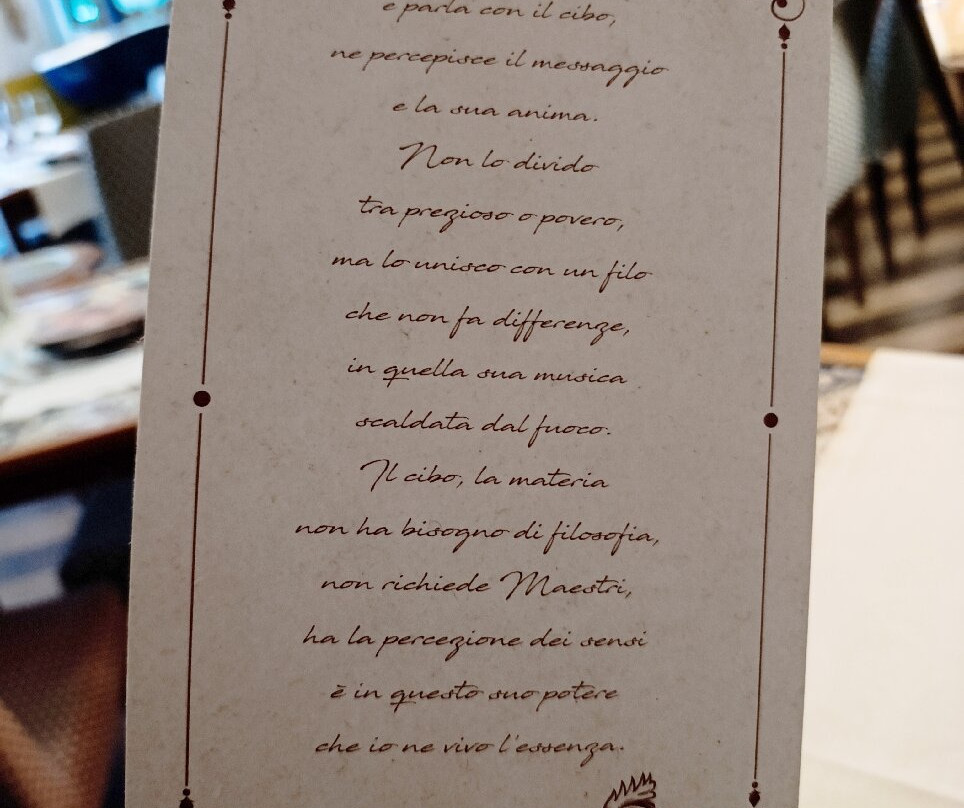 e parla con il cibo,
ne percepisce il messaggio
e la sua anima.
Non lo divido
tra prezioso o povero,
ma lo unisco con un filo
che non fa differenze,
in quella sua musica
scaldata dal fuoco.
Il cibo, la materia
non ha bisogno di filosofia,
non richiede Maestri,
ha la percezione dei sensi
è in questo suo potere
che io ne vivo l'essenza.